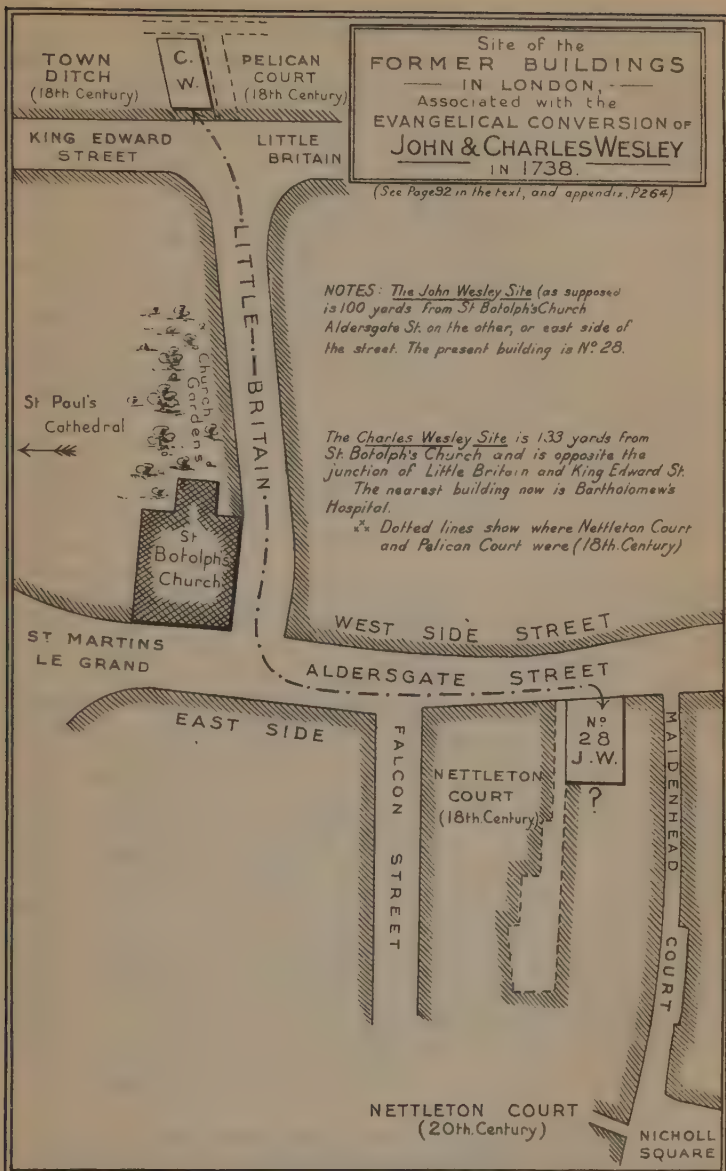 Site of the
FORMER BUILDINGS
IN LONDON,
Associated with the
EVANGELICAL CONVERSION OF
JOHN & CHARLES WESLEY
IN 1738.
(See Page 92 in the text, and appendix, P264)
TOWN
DITCH
(18th Century)
C.
W.
PELICAN
COURT
(18th. Century)
KING EDWARD
STREET
LITTLE
BRITAIN
LITTLE BRITAIN
NOTES: The John Wesley Site (as supposed
is 100 yards from St Botolph's Church
Aldersgate St. on the other, or east side of
the street. The present building is No 28.
Church
Gardens
St Paul's
Cathedral
The Charles Wesley Site is 133 yards from
St. Botolph's Church and is opposite the
junction of Little Britain and King Edward St.
The nearest building now is Bartholomew's
Hospital.
xxx Dotted lines show where Nettleton Court
and Pelican Court were (18th. Century)
St
Botolph's
Church
ST MARTINS
LE GRAND
WEST SIDE STREET
ALDERSGATE STREET
EAST SIDE
FALCON STREET
No
28
J.W.
?
MAIDENHEAD COURT
NETTLETON
COURT
(18th. Century)
NETTLETON COURT
(20th. Century)
NICHOLL
SQUARE